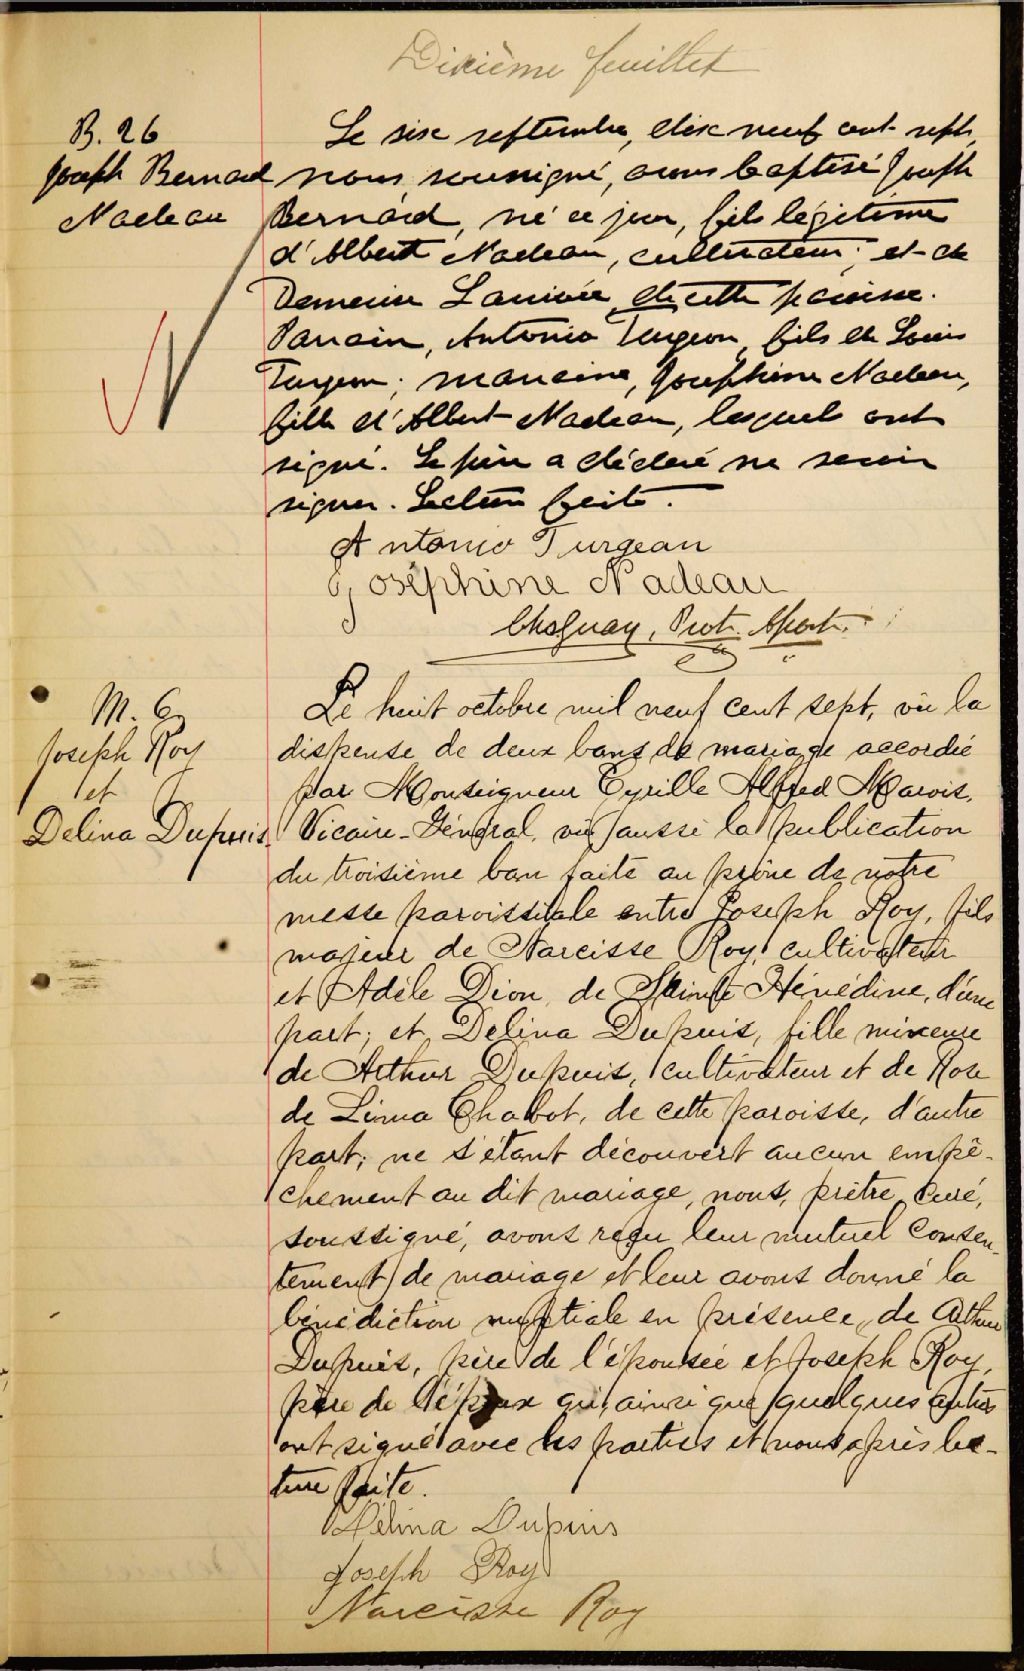 Dixième feuillet
B. 26
Joseph Bernard
Nadeau
Le six septembre, dix neuf cent sept,
nous, soussigné, avons baptisé Joseph
Bernard, né ce jour, fils légitime
d'Albert Nadeau, cultivateur, et de
Demerise Larivée, de cette paroisse.
Parrain, Antonio Turgeon, fils de Louis
Turgeon; marraine, Joséphine Nadeau,
fille d'Albert Nadeau, lesquels ont
signé. Le père a déclaré ne savoir
signer. Lecture faite.
Antonio Turgean
Joséphine Nadeau
Prot. Apost.
M. 6
Joseph Roy
et
Delina Dupuis
Le huit octobre mil neuf cent sept, vû la
dispense de deux bans de mariage accordée
par Monseigneur Cyrille Alfred Marois,
Vicaire-Général, vû aussi la publication
du troisième ban faite au prône de notre
messe paroissiale entre Joseph Roy, fils
majeur de Narcisse Roy, cultivateur
et Adèle Dion, de Sainte Hénédine, d'une
part; et Delina Dupuis, fille mineure
de Arthur Dupuis, cultivateur et de Rose
de Lima Chabot, de cette paroisse, d'autre
part; ne s'étant découvert aucun empê-
chement au dit mariage, nous, prêtre, curé,
soussigné, avons reçu leur mutuel consen-
tement de mariage et leur avons donné la
bénédiction nuptiale en présence de Arthur
Dupuis, père de l'épousée et Joseph Roy,
père de l'époux qui, ainsi que quelques autres
ont signé avec les parties et nous après lec-
ture faite.
Délina Dupuis
Joseph Roy
Narcisse Roy